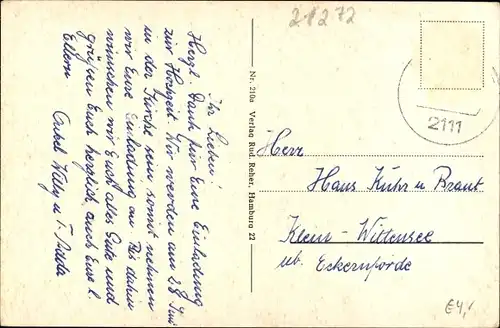 21272
Ihr Lieben!
Herzl. Dank für Eure Einladung
zur Hochzeit. Wir werden am 28. Juni
in der Kirche sein somit nehmen
wir Eure Einladung an. Bis dahin
wünschen wir Euch alles Gute und
grüßen Euch herzlich, auch Eure l.
Eltern Onkel Willy u. T.
Nr. 210a Verlag Rud. Reher, Hamburg 22
2111
Herr
Hans Kuhr u Braut
Klein-Wittensee
üb. Eckernförde
€4,-